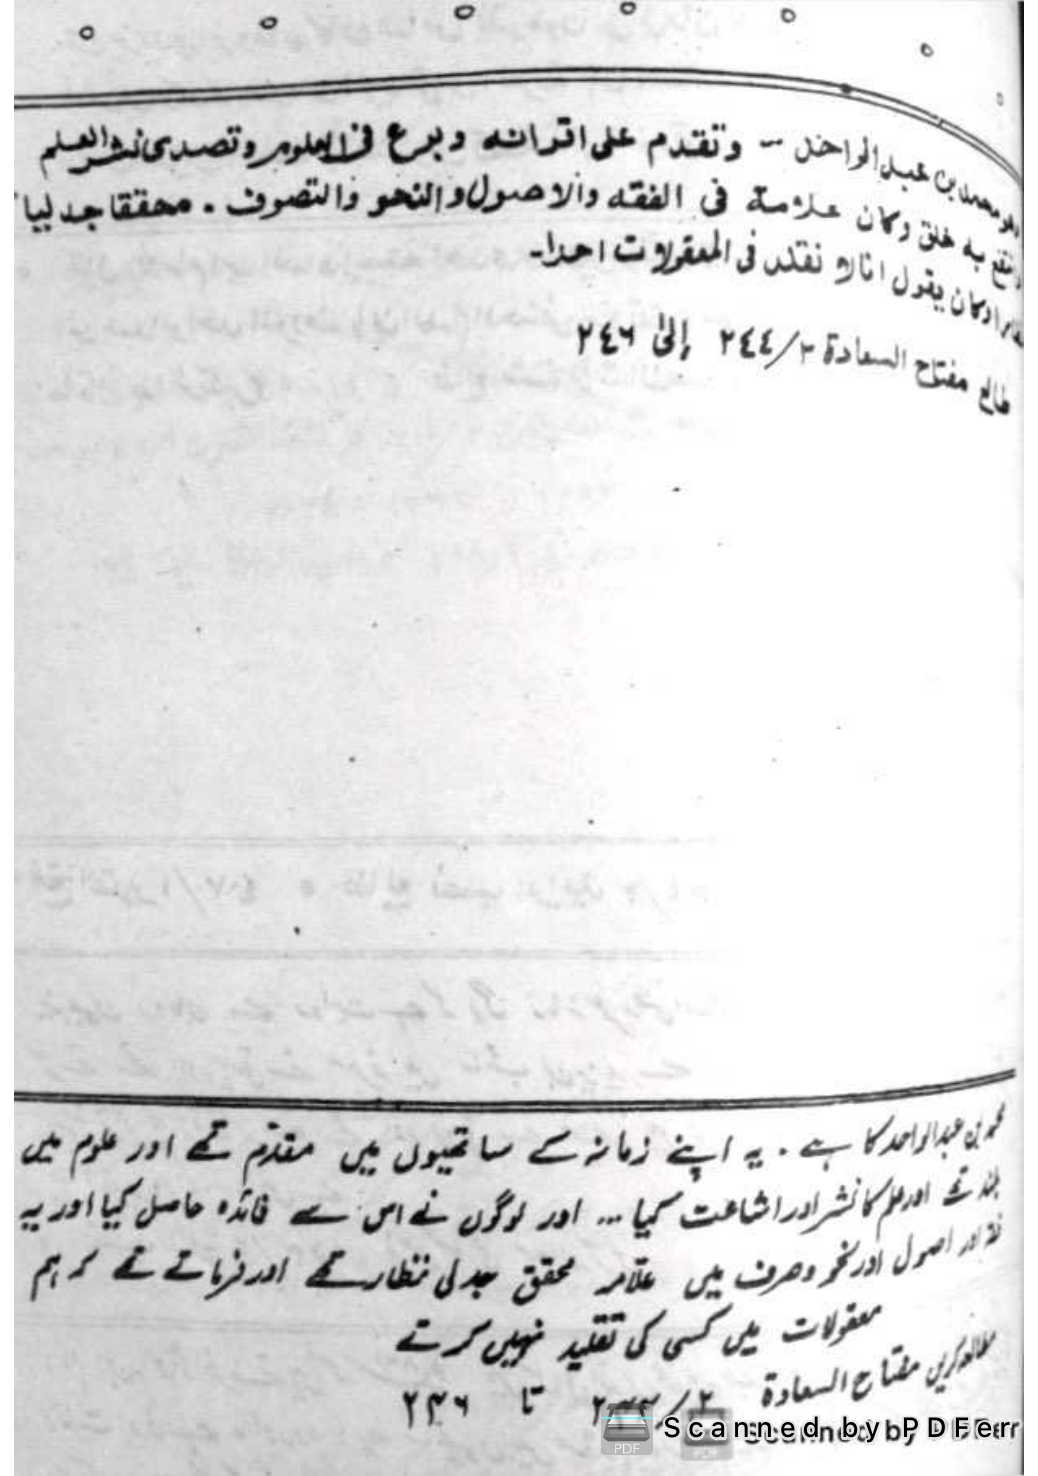 هو محمد بن عبد الواحد – وتقدم على اقرانه وبرع فى العلوم وتصدى نشر العلم
وانتفع به خلق وكان علامة فى الفقه والاصول والنحو والتصوف . محققا جدليا
وكان يقول انا لا نقلد فى المعقولات احدا ۔
طالع مفتاح السعادة ٢/٢٤٤ إلىٰ ٢٤٦
محمد بن عبدالواحد کا ہے . یہ اپنے زمانہ کے ساتھیوں میں مقدّم تھے اور علوم میں
بلند تھے اور علم کا نشر اور اشاعت کیا ... اور لوگوں نے اس سے فائدہ حاصل کیا اور یہ
فقہ اور اصول اور نحو و صرف میں علامہ محقق جدلی نظار تھے اور فرماتے تھے کہ ہم
معقولات میں کسی کی تقلید نہیں کرتے
مطالعہ کریں مفتاح السعادة ۲/۲۴۴ تا ۲۴۶
Scanned by PDFerr
Scanned by